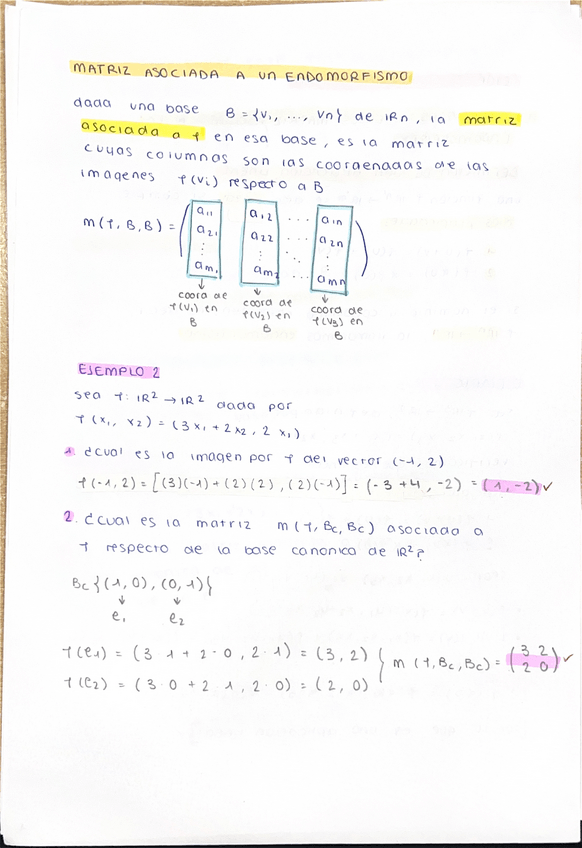 MATRIZ ASOCIADA A UN ENDOMORFISMO
dada una base B = {v₁, ..., vn} de IRn, la matriz
asociada a f en esa base, es la matriz
cuyas columnas son las coordenadas de las
imagenes f(vi) respecto a B
m(f, B, B) = ( a₁₁ a₁₂ ... a₁n
a₂₁ a₂₂ ... a₂n
⋮ ⋮ ⋱ ⋮
am₁ am₂ amn )
coord de f(v₁) en B
coord de f(v₂) en B
coord de f(v₃) en B
EJEMPLO 2
sea f: IR² → IR² dada por
f(x₁, x₂) = (3x₁ + 2x₂, 2x₁)
1. ¿cual es la imagen por f del vector (-1, 2)
f(-1, 2) = [(3)(-1) + (2)(2), (2)(-1)] = (-3 + 4, -2) = (1, -2) ✓
2. ¿cual es la matriz m(f, Bc, Bc) asociada a
f respecto de la base canonica de IR²?
Bc {(1, 0), (0, 1)}
↓ ↓
e₁ e₂
f(e₁) = (3·1 + 2·0, 2·1) = (3, 2) } m(f, Bc, Bc) = (3 2
f(e₂) = (3·0 + 2·1, 2·0) = (2, 0) 2 0) ✓